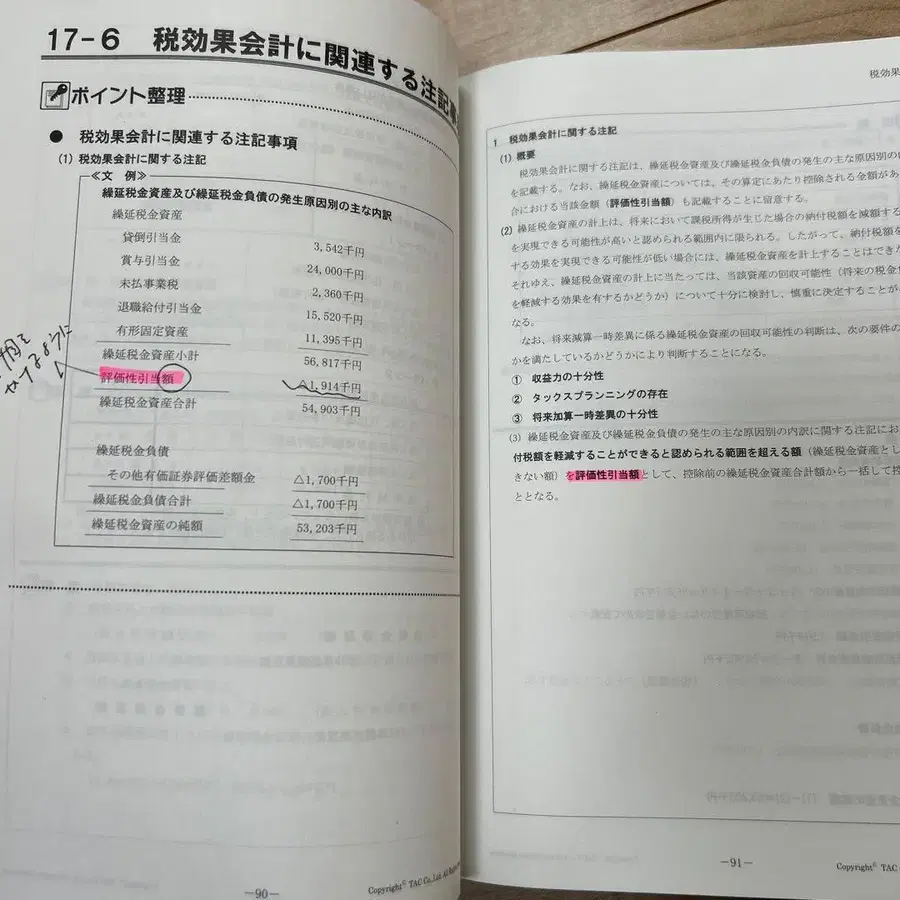 17-6 税効果会計に関連する注記事
ポイント整理
● 税効果会計に関連する注記事項
(1) 税効果会計に関する注記
≪文 例≫
繰延税金資産及び繰延税金負債の発生原因別の主な内訳
繰延税金資産
貸倒引当金 3,542千円
賞与引当金 24,000千円
未払事業税 2,360千円
退職給付引当金 15,520千円
有形固定資産 11,395千円
繰延税金資産小計 56,817千円
評価性引当額 △1,914千円
繰延税金資産合計 54,903千円
繰延税金負債
その他有価証券評価差額金 △1,700千円
繰延税金負債合計 △1,700千円
繰延税金資産の純額 53,203千円
-90-
Copyright© TAC Co.,Ltd. All Rights
税効果
1 税効果会計に関する注記
(1) 概要
税効果会計に関する注記は、繰延税金資産及び繰延税金負債の発生の主な原因別の
を記載する。なお、繰延税金資産については、その算定にあたり控除される金額があ
合における当該金額(評価性引当額)も記載することに留意する。
(2) 繰延税金資産の計上は、将来において課税所得が生じた場合の納付税額を減額する
を実現できる可能性が高いと認められる範囲内に限られる。したがって、納付税額を
する効果を実現できる可能性が低い場合には、繰延税金資産を計上することはでき
それゆえ、繰延税金資産の計上に当たっては、当該資産の回収可能性(将来の税金
を軽減する効果を有するかどうか)について十分に検討し、慎重に決定することが
なる。
なお、将来減算一時差異に係る繰延税金資産の回収可能性の判断は、次の要件の
かを満たしているかどうかにより判断することになる。
① 収益力の十分性
② タックスプランニングの存在
③ 将来加算一時差異の十分性
(3) 繰延税金資産及び繰延税金負債の発生の主な原因別の内訳に関する注記にお
付税額を軽減することができると認められる範囲を超える額(繰延税金資産とし
きない額)を評価性引当額として、控除前の繰延税金資産合計額から一括して控
ととなる。
-91-
Copyright© TAC